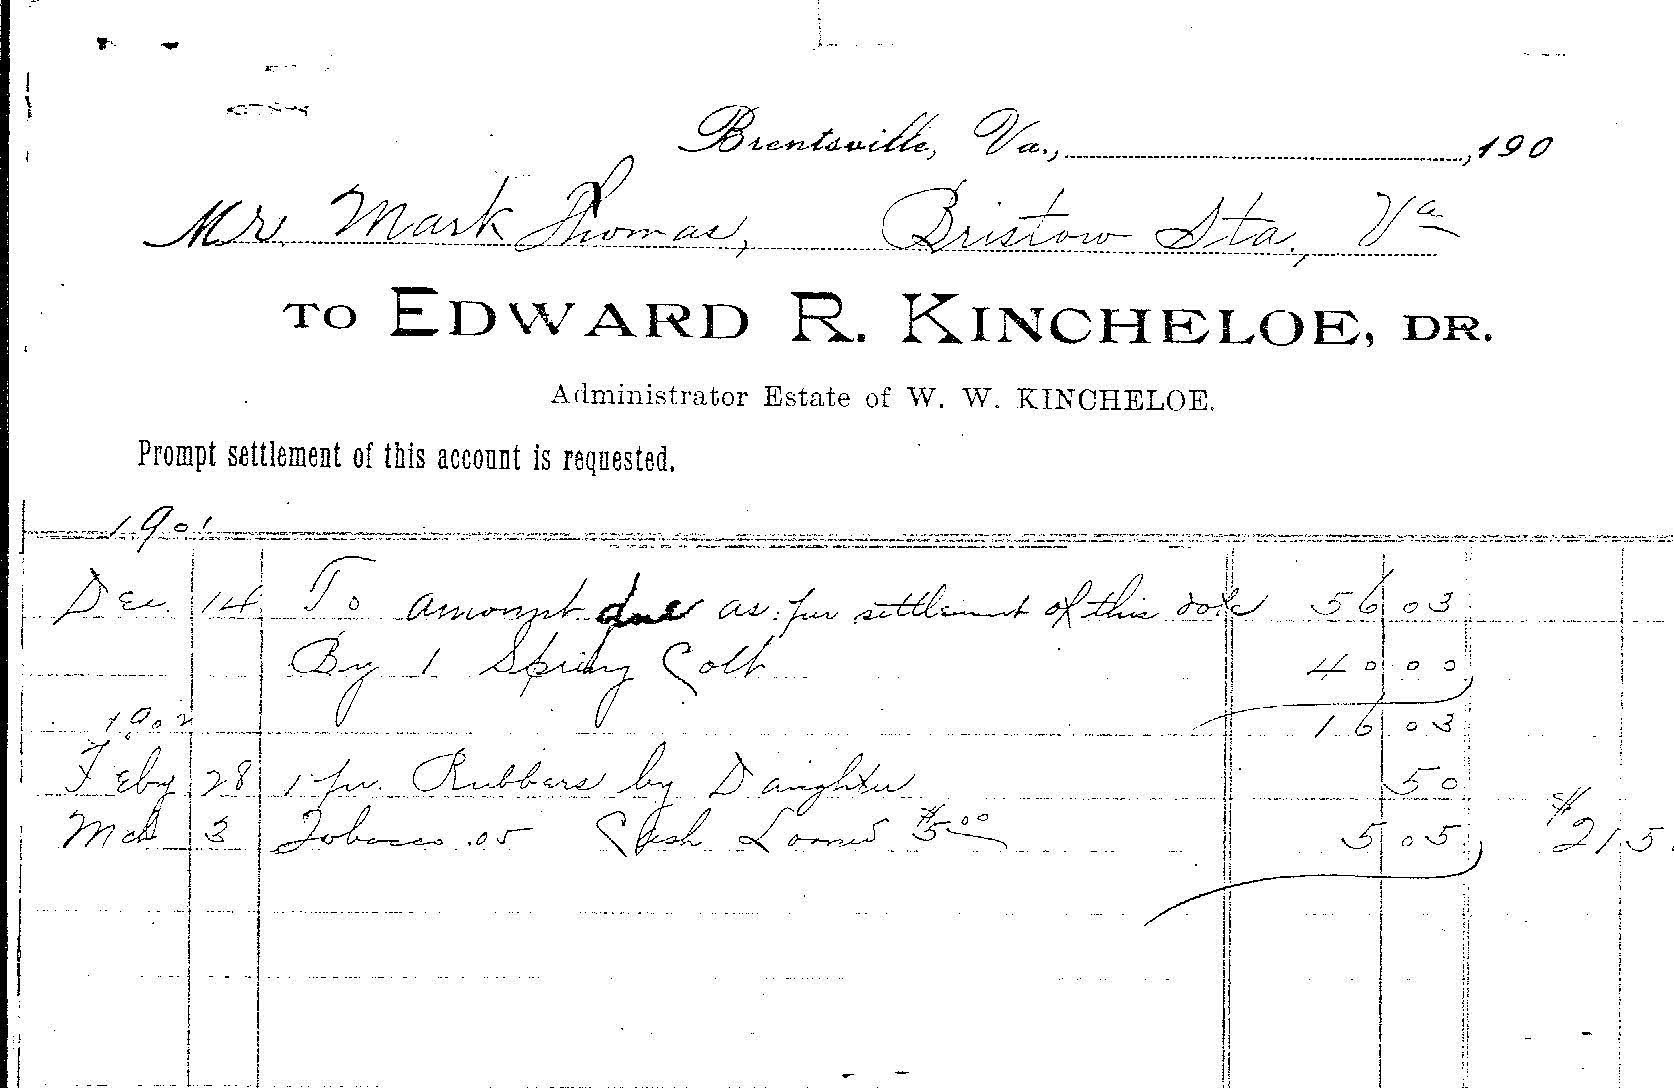 Brentsville, Va., , 190
Mr. Mark Thomas, Bristow Sta., Va
TO EDWARD R. KINCHELOE, DR.
Administrator Estate of W. W. KINCHELOE.
Prompt settlement of this account is requested.
1901
Dec. 14 To amount due as per settlement of this date 56 03
By 1 Spring Colt 40 00
1902 16 03
Feby 28 1 pr. Rubbers by Daughter 50
Mch 3 Tobacco .05 Cash Loaned $5.00 5 05 $21 5